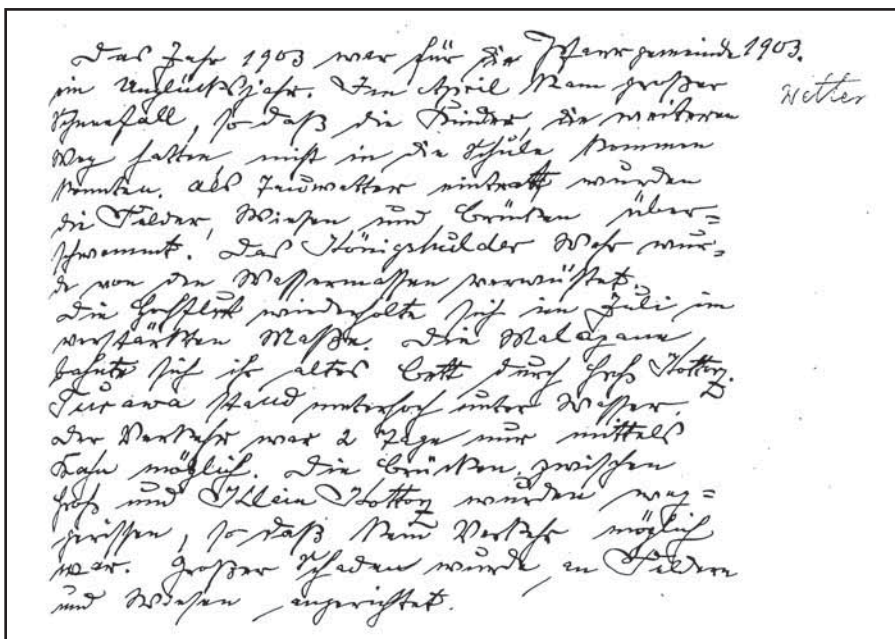 Das Jahr 1903 war für die Pfarrgemeinde 1903.
ein Unglücksjahr. Im April kam großer Wetter
Schneefall, so daß die Kinder, die weiteren
Weg hatten nicht in die Schule kommen
konnten. Als Tauwetter eintratt wurden
die Felder, Wiesen und Brücken über=
schwemmt. Das Königshulder Wehr wur=
de von den Wassermassen verwüstet.
Die Hochflut wiederholte sich im Juli im
verstärkten Maße. Die Malapane
bahnte sich ihr altes Bett durch Groß Kottorz.
Turawa stand meterhoch unter Wasser.
Der Verkehr war 2 Tage nur mittels
Kahn möglich. Die Brücken zwischen
Groß und Klein Kottorz wurden weg=
gerissen, so daß kein Verkehr möglich
war. Großer Schaden wurde an Feldern
und Wiesen angerichtet.